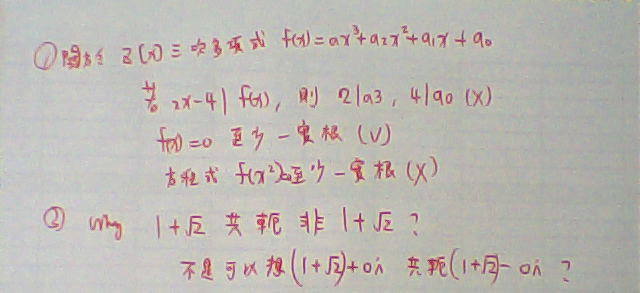 ① 關於 Z[x] 三次多項式 f(x)=ax³+a₂x²+a₁x+a₀
若 2x-4 | f(x), 則 2|a3, 4|a0 (X)
f(x)=0 至少一實根 (V)
方程式 f(x²)=0至少一實根 (X)
② why 1+√2 共軛非 1+√2 ?
不是可以想(1+√2)+0i 共軛(1+√2)-0i ?